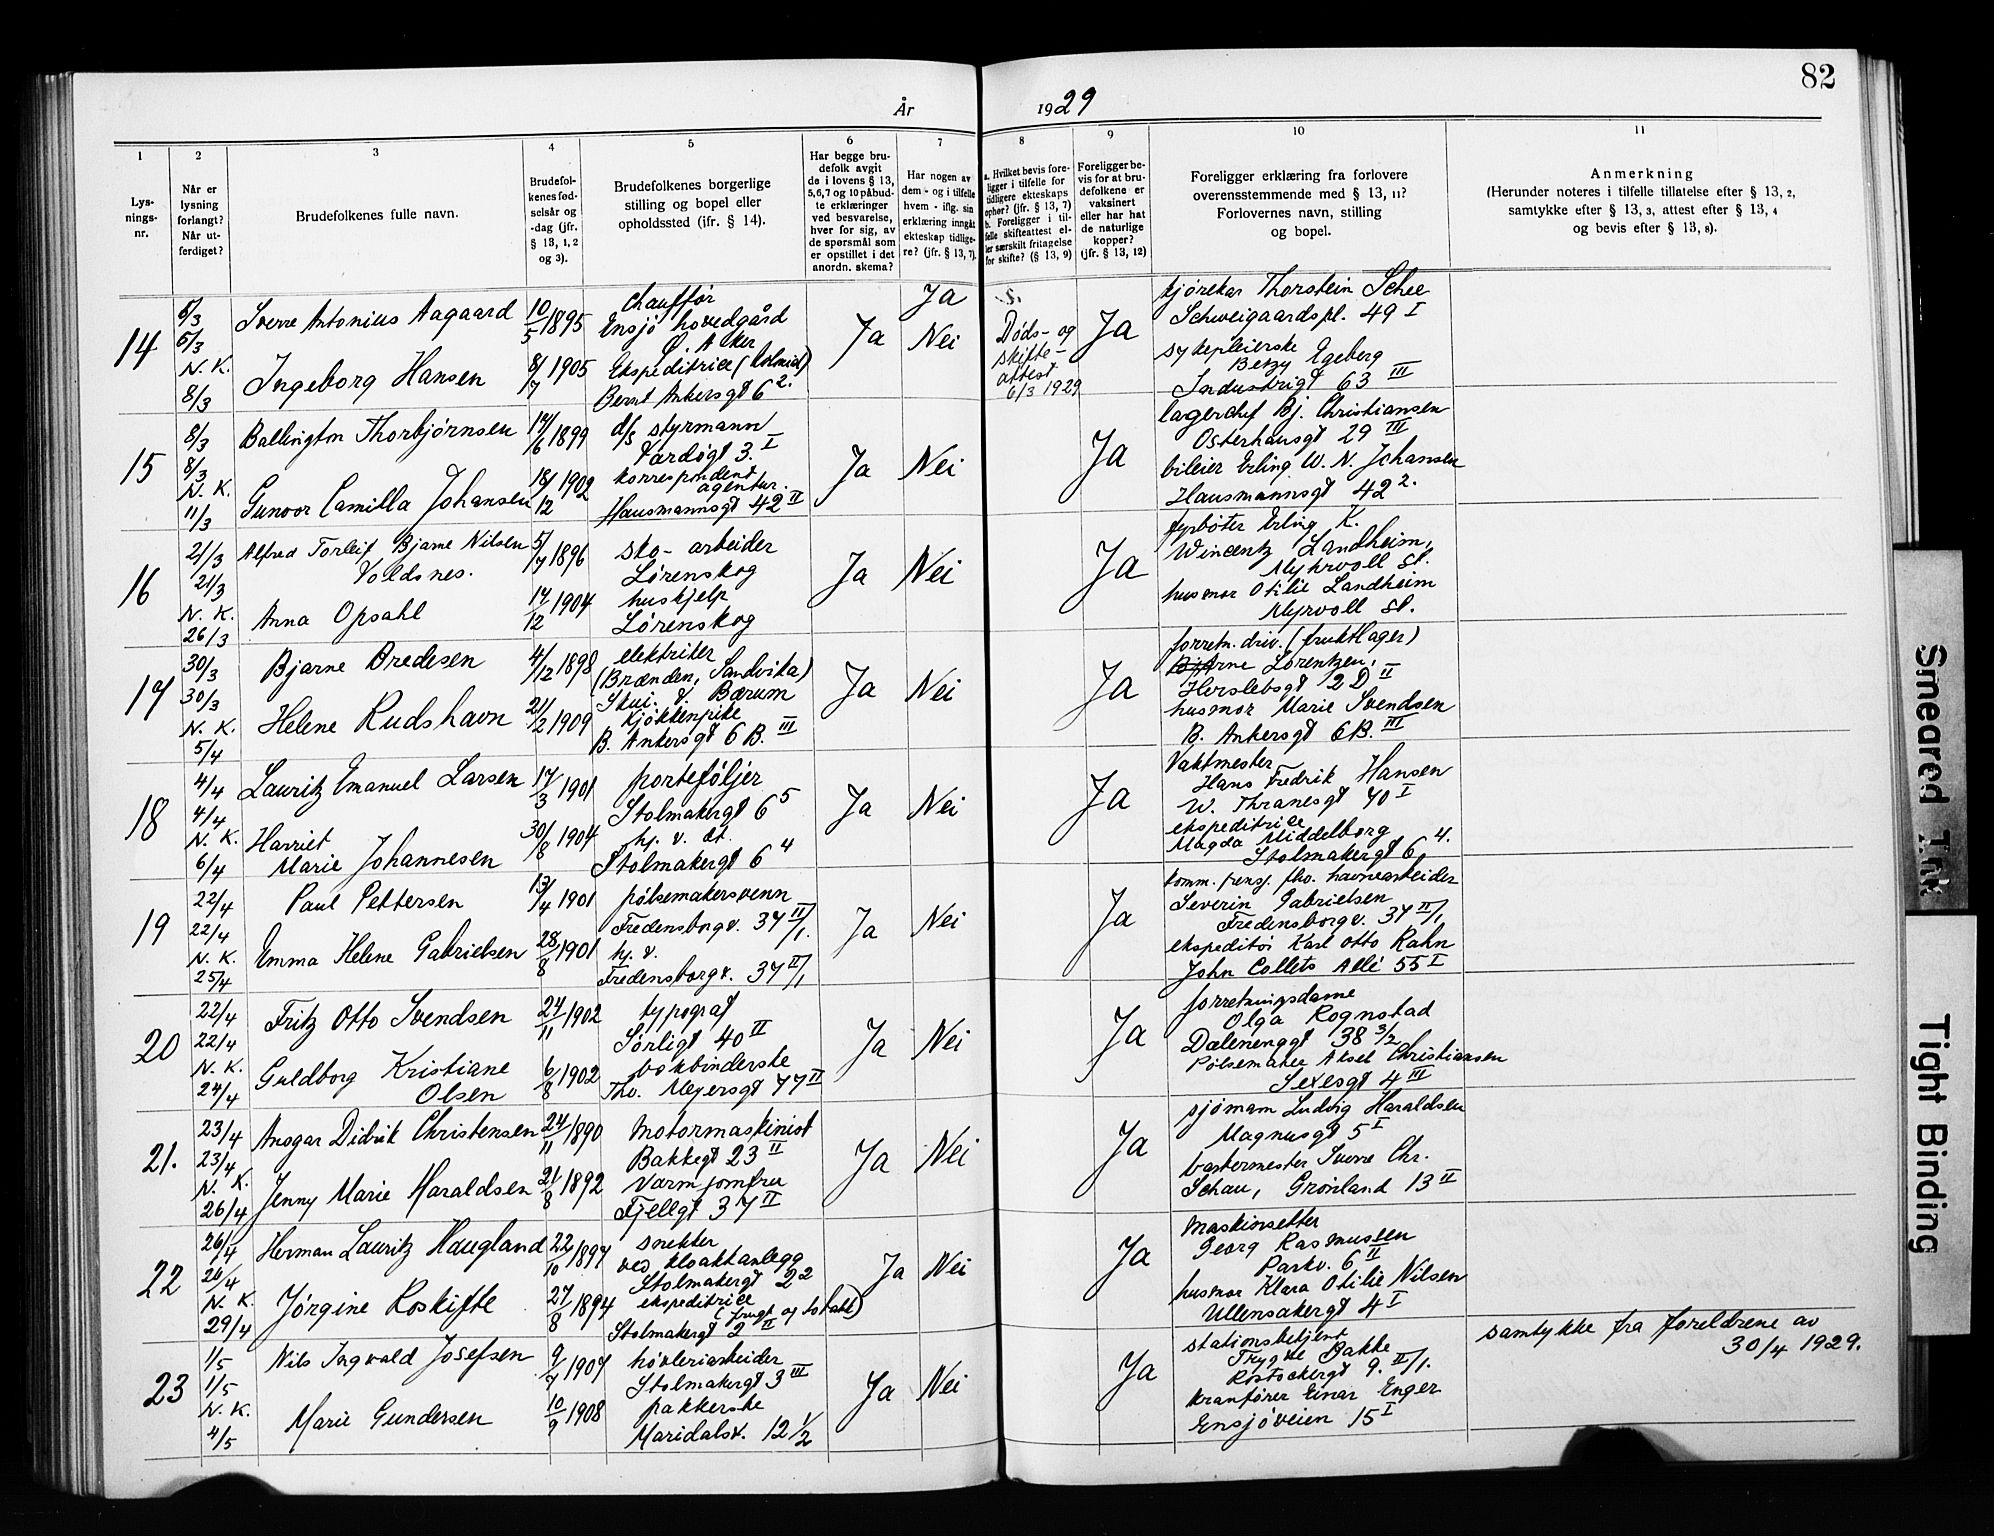 82
År 1929
1
Lys-
nings-
nr.
2
Når er
lysning
forlangt?
Når ut-
ferdiget?
3
Brudefolkenes fulle navn.
4
Brudefol-
kenes fød-
selsår og
-dag (jfr.
§ 13, 1, 2
og 3).
5
Brudefolkenes borgerlige
stilling og bopel eller
opholdssted (jfr. § 14).
6
Har begge bru-
defolk avgit
de i lovens § 13,
5,6,7 og 10 påbud-
te erklæringer
ved besvarelse,
hver for sig, av
de spørsmål som
er opstillet i det
anordn. skema?
7
Har nogen av
dem - og i tilfelle
hvem - iflg. sin
erklæring inngått
ekteskap tidlige-
re? (jfr. § 13, 7).
8
a. Hvilket bevis fore-
ligger i tilfelle for
tidligere ekteskaps
ophør? (jfr. § 13, 7)
b. Foreligger i til-
felle skifteattest el-
ler særskilt fritagelse
for skifte? (§ 13, 9)
9
Foreligger be-
vis for at bru-
defolkene er
vaksinert
eller har hat
de naturlige
kopper?
(jfr. § 13, 12)
10
Foreligger erklæring fra forlovere
overensstemmende med § 13, 11?
Forlovernes navn, stilling
og bopel.
11
Anmerkning
(Herunder noteres i tilfelle tillatelse efter § 13, 2,
samtykke efter § 13, 3, attest efter § 13, 4
og bevis efter § 13, 8).
14
6/3
6/3
N. K.
8/3
Sverre Antonius Aagaard
Ingeborg Hansen
10/5 1895
8/7 1905
chauffør
Ensjö hovedgård
Ö. Aker
Ekspeditrice
Bernt Ankersgt 6 2.
Ja
Ja
Nei
Døds- og
skifte-
attest
6/3 1929
Ja
kjörekar Thorstein Schee
Schweigaardspl. 49 I
sykepleierske
Betzy Egeberg
Industrigt 63 III
15
8/3
8/3
N. K.
11/3
Ballington Thorbjørnsen
Gunvor Camilla Johansen
17/6 1899
18/12 1902
d/s styrmann
Vardøgt 3. I
korrespondent
agentur.
Hausmannsgt 42 II
Ja
Nei
Ja
lagerchef Bj. Christiansen
Osterhausgt 29 III
bileier Erling W. N. Johansen
Hausmannsgt 42 2.
16
21/3
21/3
N. K.
26/3
Alfred Torleif Bjarne Nilsen
Voldsnes.
Anna Opsahl
5/7 1896
17/12 1904
sko- arbeider
Lørenskog
huskjelp
Lørenskog
Ja
Nei
Ja
fyrböter Erling K.
Wincentz Landheim,
Myhrvoll st.
husmor Otilie Landheim
Myrvoll st.
17
30/3
30/3
N. K.
5/4
Bjarne Bredesen
Helene Rudshavn
4/12 1898
21/2 1909
elektriker
(Brænden, Sandvika)
Skui. V. Bærum
kjøkkenpike
B. Ankersgt 6 B. III
Ja
Nei
Ja
forretn. driv. (fruktlager)
Bjarne Lorentzen,
Herslebsgt 2 D II
husmor Marie Svendsen
B. Ankersgt 6 B. III
18
4/4
4/4
N. K.
6/4
Lauritz Emanuel Larsen
Harriet
Marie Johannesen
17/3 1901
30/8 1904
porteføljer
Stolmakergt 6 5
hj. v. dt.
Stolmakergt 6 4
Ja
Nei
Ja
Vaktmester
Hans Fredrik Hansen
W. Thranesgt 70 I
ekspeditrice
Magda Middelborg
Stolmakergt 6 4.
19
22/4
22/4
N. K.
25/4
Paul Pettersen
Emma Helene Gabrielsen
13/4 1901
28/8 1901
pølsemakersvenn
Fredensborgv. 37 II/1.
hj. v.
Fredensborgv. 37 II/1
Ja
Nei
Ja
komm. pensj. fhv. havnearbeider
Severin Gabrielsen
Fredensborgv. 37 II/1
ekspeditör Karl Otto Rahn
John Collets Allé 55 I
20
22/4
22/4
N. K.
24/4
Fritz Otto Svendsen
Guldborg Kristiane
Olsen
24/11 1902
6/8 1902
typograf
Sörligt 40 II
bokbinderske
Thv. Meyersgt 77 II
Ja
Nei
Ja
forretningsdame
Olga Rognstad
Dælenenggt 38 3/2
Pölsemaker Aksel Christiansen
Sexesgt 4 III
21.
23/4
23/4
N. K.
26/4
Ansgar Didrik Christensen
Jenny Marie Haraldsen
24/11 1890
21/8 1892
Motormaskinist
Bakkegt 23 II
varmjomfru
Fjellgt 37 II
Ja
Nei
Ja
sjömann Ludvig Haraldsen
Magnusgt 5 I
bastermester Sverre Chr.
Schau, Grönland 13 II
22
26/4
26/4
N. K.
29/4
Herman Lauritz Haugland
Jørgine Roskifte
22/10 1897
27/8 1894
snekker
ved kloakkanlegg
Stolmakergt 22
ekspeditrice
(frugt og tobakk)
Stolmakergt 2 II
Ja
Nei
Ja
Maskinsetter
Georg Rasmussen
Parkv. 6 II
husmor Klara Otilie Nilsen
Ullensakergt 4 I
23
1/5
1/5
N. K.
4/5
Nils Ingvald Josefsen
Marie Gundersen
9/7 1907
10/9 1908
høvleriarbeider
Stolmakergt 3 III
pakkerske
Maridalsv. 12 1/2
Ja
Nei
Ja
stationsbetjent
Trygve Bakke
Rostockergt 9. II/1.
kranförer Einar Enger
Ensjöveien 15 I
samtykke fra foreldrene av
30/4 1929.
Smeared Ink
Tight Binding